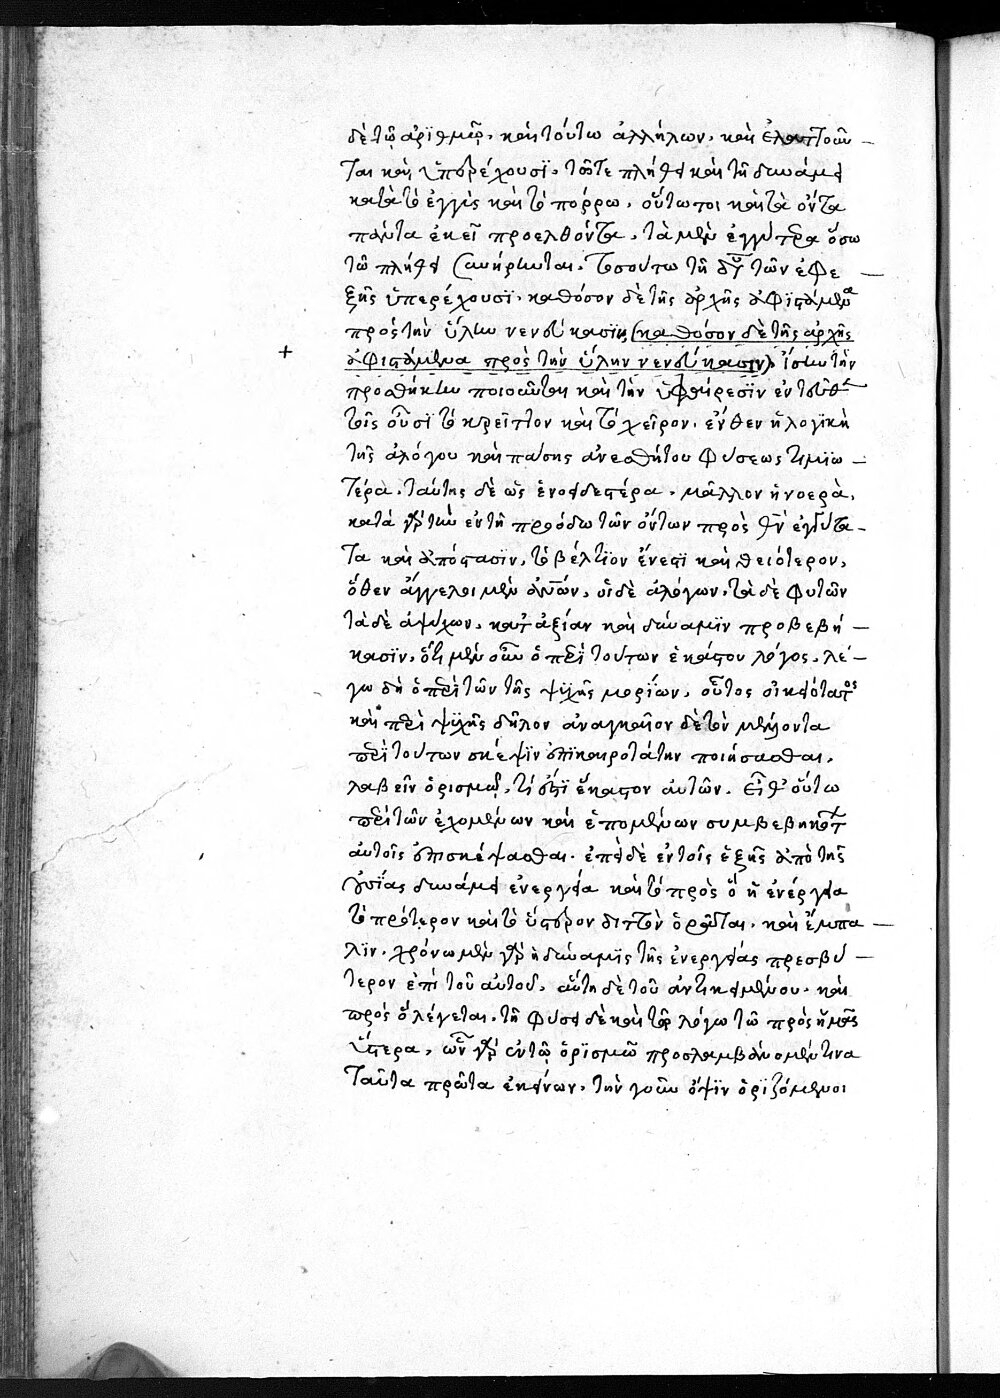 δὲ τῷ ἀριθμῷ. καὶ τούτω ἀλλήλων. καὶ ἐλαττοῦν
ται καὶ ὑπερέχουσϊ. τῶτε πλήθει καὶ τῆ δυνάμει
κατὰ τὸ ἐγγὺς καὶ τὸ πόρρω. οὕτω τοι καὶ τὰ ὄντα
πάντα ἐκεῖ προελθόντα. τὰ μὲν ἐγγύτερα ὅσω
τῶ πλήθει συνήρηνται. τοσούτω τῆ δυ τῶν ἐφε
ξῆς ὑπερέχουσϊ. καθόσον δὲ τῆς ἀρχῆς ἀφιστάμενα
πρὸς τὴν ὕλην νενεύκασιν, (καθόσον δὲ τῆς ἀρχῆς
+ ἀφιστάμενα πρὸς τὴν ὕλην νενεύκασιν). ἴσην τὴν
προσθήκην ποιοῦνται καὶ τὴν ὑφαίρεσϊν ἐν
τοῖς οὖσϊ τὸ κρεῖττον καὶ τὸ χεῖρον. ἔνθεν ἡ λογϊκὴ
τῆς ἀλόγου καὶ πάσης ἀνεσθήτου φύσεως τιμϊω
τέρα. ταύτης δὲ ὡς ἑνοειδεστέρα. μᾶλλον ἡ νοερὰ.
κατὰ γὰρ τὴν ἐν τῆ προόδω τῶν ὄντων πρὸς τὴν ἐγγύτα
τα καὶ ἀπόστασϊν. τὸ βέλτϊον ἔνεστϊ καὶ θειότερον.
ὅθεν ἄγγελοι μὲν ἀνῶν. οἱ δὲ ἀλόγων. τὰ δὲ φυτῶν
τὰ δὲ ἀψύχων. κατ ἀξίαν καὶ δύναμϊν προβεβή
κασϊν. ὅτι μὲν οὖν ὁ περὶ τούτων ἑκάστου λόγος. λέ
γω δὴ ὁ περὶ τῶν τῆς ψυχῆς μορίων. οὗτος οἰκειότατος
καὶ περὶ ψυχῆς δῆλον ἀναγκαῖον δὲ τὸν μέλλοντα
περὶ τούτων σκέψϊν ἐπϊκαιροτάτην ποιήσασθαι.
λαβεῖν ὁρισμῷ. τί ἐστϊ ἕκαστον αὐτῶν. εἶθ οὕτω
περὶ τῶν ἐχομένων καὶ ἑπομένων συμβεβηκότ
αὐτοῖς ἐπισκέψασθαι. ἐπεὶ δὲ ἐν τοῖς ἑξῆς ἀπὸ τῆς
οὐσίας δυνάμει ἐνεργεία καὶ τὸ πρὸς ὃ ἡ ἐνέργεια
τὸ πρότερον καὶ τὸ ὕστερον διττὸν ὁρᾶται. καὶ ἔμπα
λϊν. χρόνω μὲν γὰρ ἡ δύναμϊς τῆς ἐνεργείας πρεσβύ
τερον ἐπὶ τοῦ αὐτοῦ. αὕτη δὲ τοῦ ἀντικειμένου. καὶ
πρὸς ὃ λέγεται. τῆ φύσει δὲ καὶ τῶ λόγω τῶ πρὸς ἡμᾶς
ὕστερα. ὧν γὰρ ἐν τῷ ὁρισμῶ προσλαμβάνομέν τινα
ταῦτα πρῶτα ἐκείνων. τὴν γοῦν ὄψϊν ὁρϊζόμενοι